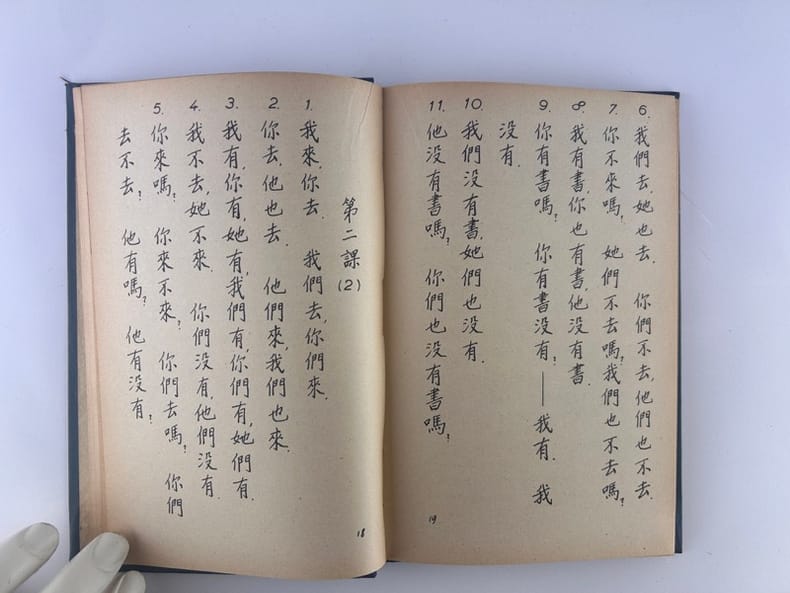 第二課(2)
1. 我來,你去. 我們去,你們來.
2. 你去,他也去. 他們來,我們也來.
3. 我有,你有,她有,我們有,你們有,她們有.
4. 我不去,她不來. 你們没有,他們没有.
5. 你來嗎? 你來不來? 你們去嗎? 你們
去不去? 他有嗎? 他有没有?
18
6. 我們去,她也去. 你們不去,他們也不去.
7. 你不來嗎? 她們不去嗎?我們也不去嗎?
8. 我有書,你也有書,他没有書.
9. 你有書嗎? 你有書没有?——我有. 我
没有.
10. 我們没有書,她們也没有.
11. 他没有書嗎? 你們也没有書嗎?
19